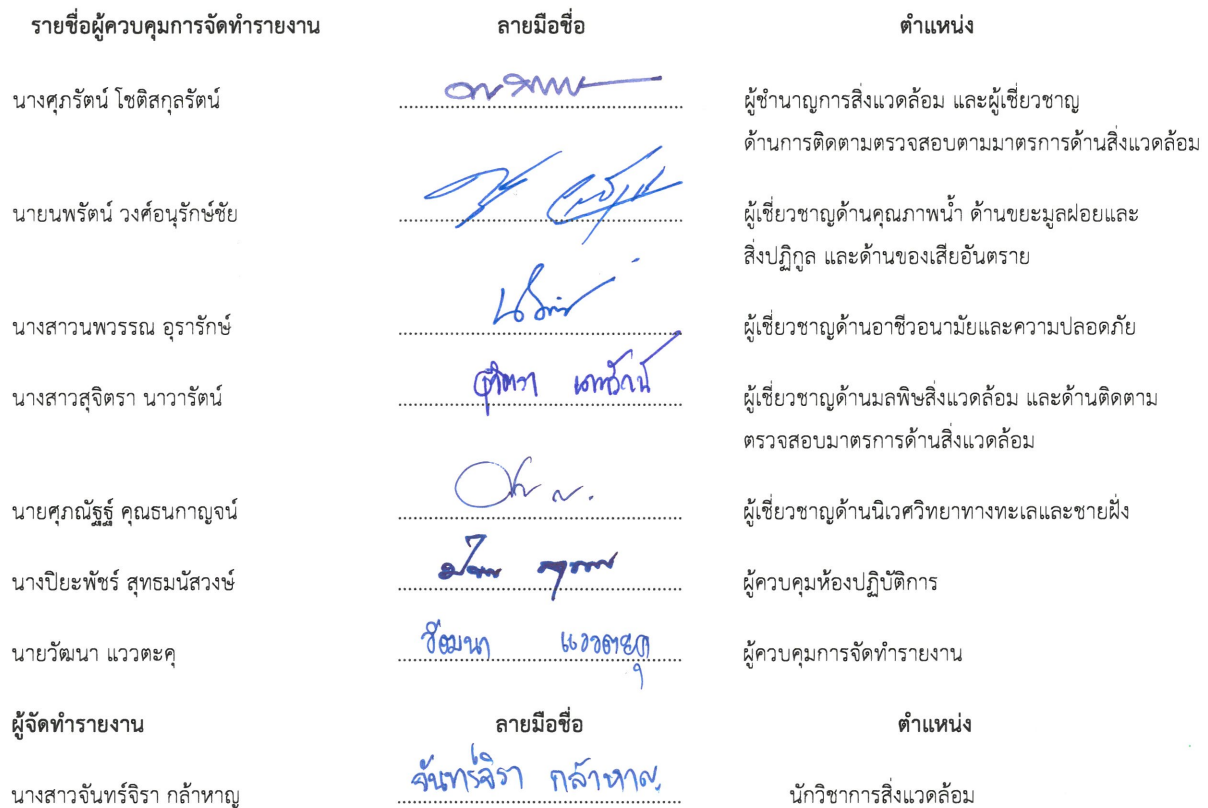 รายชื่อผู้ควบคุมการจัดทำรายงาน ลายมือชื่อ ตำแหน่ง
นางศุภรัตน์ โชติสกุลรัตน์ ผู้ชำนาญการสิ่งแวดล้อม และผู้เชี่ยวชาญ
ด้านการติดตามตรวจสอบตามมาตรการด้านสิ่งแวดล้อม
นายนพรัตน์ วงศ์อนุรักษ์ชัย ผู้เชี่ยวชาญด้านคุณภาพน้ำ ด้านขยะมูลฝอยและ
สิ่งปฏิกูล และด้านของเสียอันตราย
นางสาวนพวรรณ อุรารักษ์ ผู้เชี่ยวชาญด้านอาชีวอนามัยและความปลอดภัย
นางสาวสุจิตรา นาวารัตน์ ผู้เชี่ยวชาญด้านมลพิษสิ่งแวดล้อม และด้านติดตาม
ตรวจสอบมาตรการด้านสิ่งแวดล้อม
นายศุภณัฐฐ์ คุณธนกาญจน์ ผู้เชี่ยวชาญด้านนิเวศวิทยาทางทะเลและชายฝั่ง
นางปิยะพัชร์ สุทธมนัสวงษ์ ผู้ควบคุมห้องปฏิบัติการ
นายวัฒนา แววตะคุ วัฒนา แววตะคุ ผู้ควบคุมการจัดทำรายงาน
ผู้จัดทำรายงาน ลายมือชื่อ ตำแหน่ง
นางสาวจันทร์จิรา กล้าหาญ จันทร์จิรา กล้าหาญ นักวิชาการสิ่งแวดล้อม